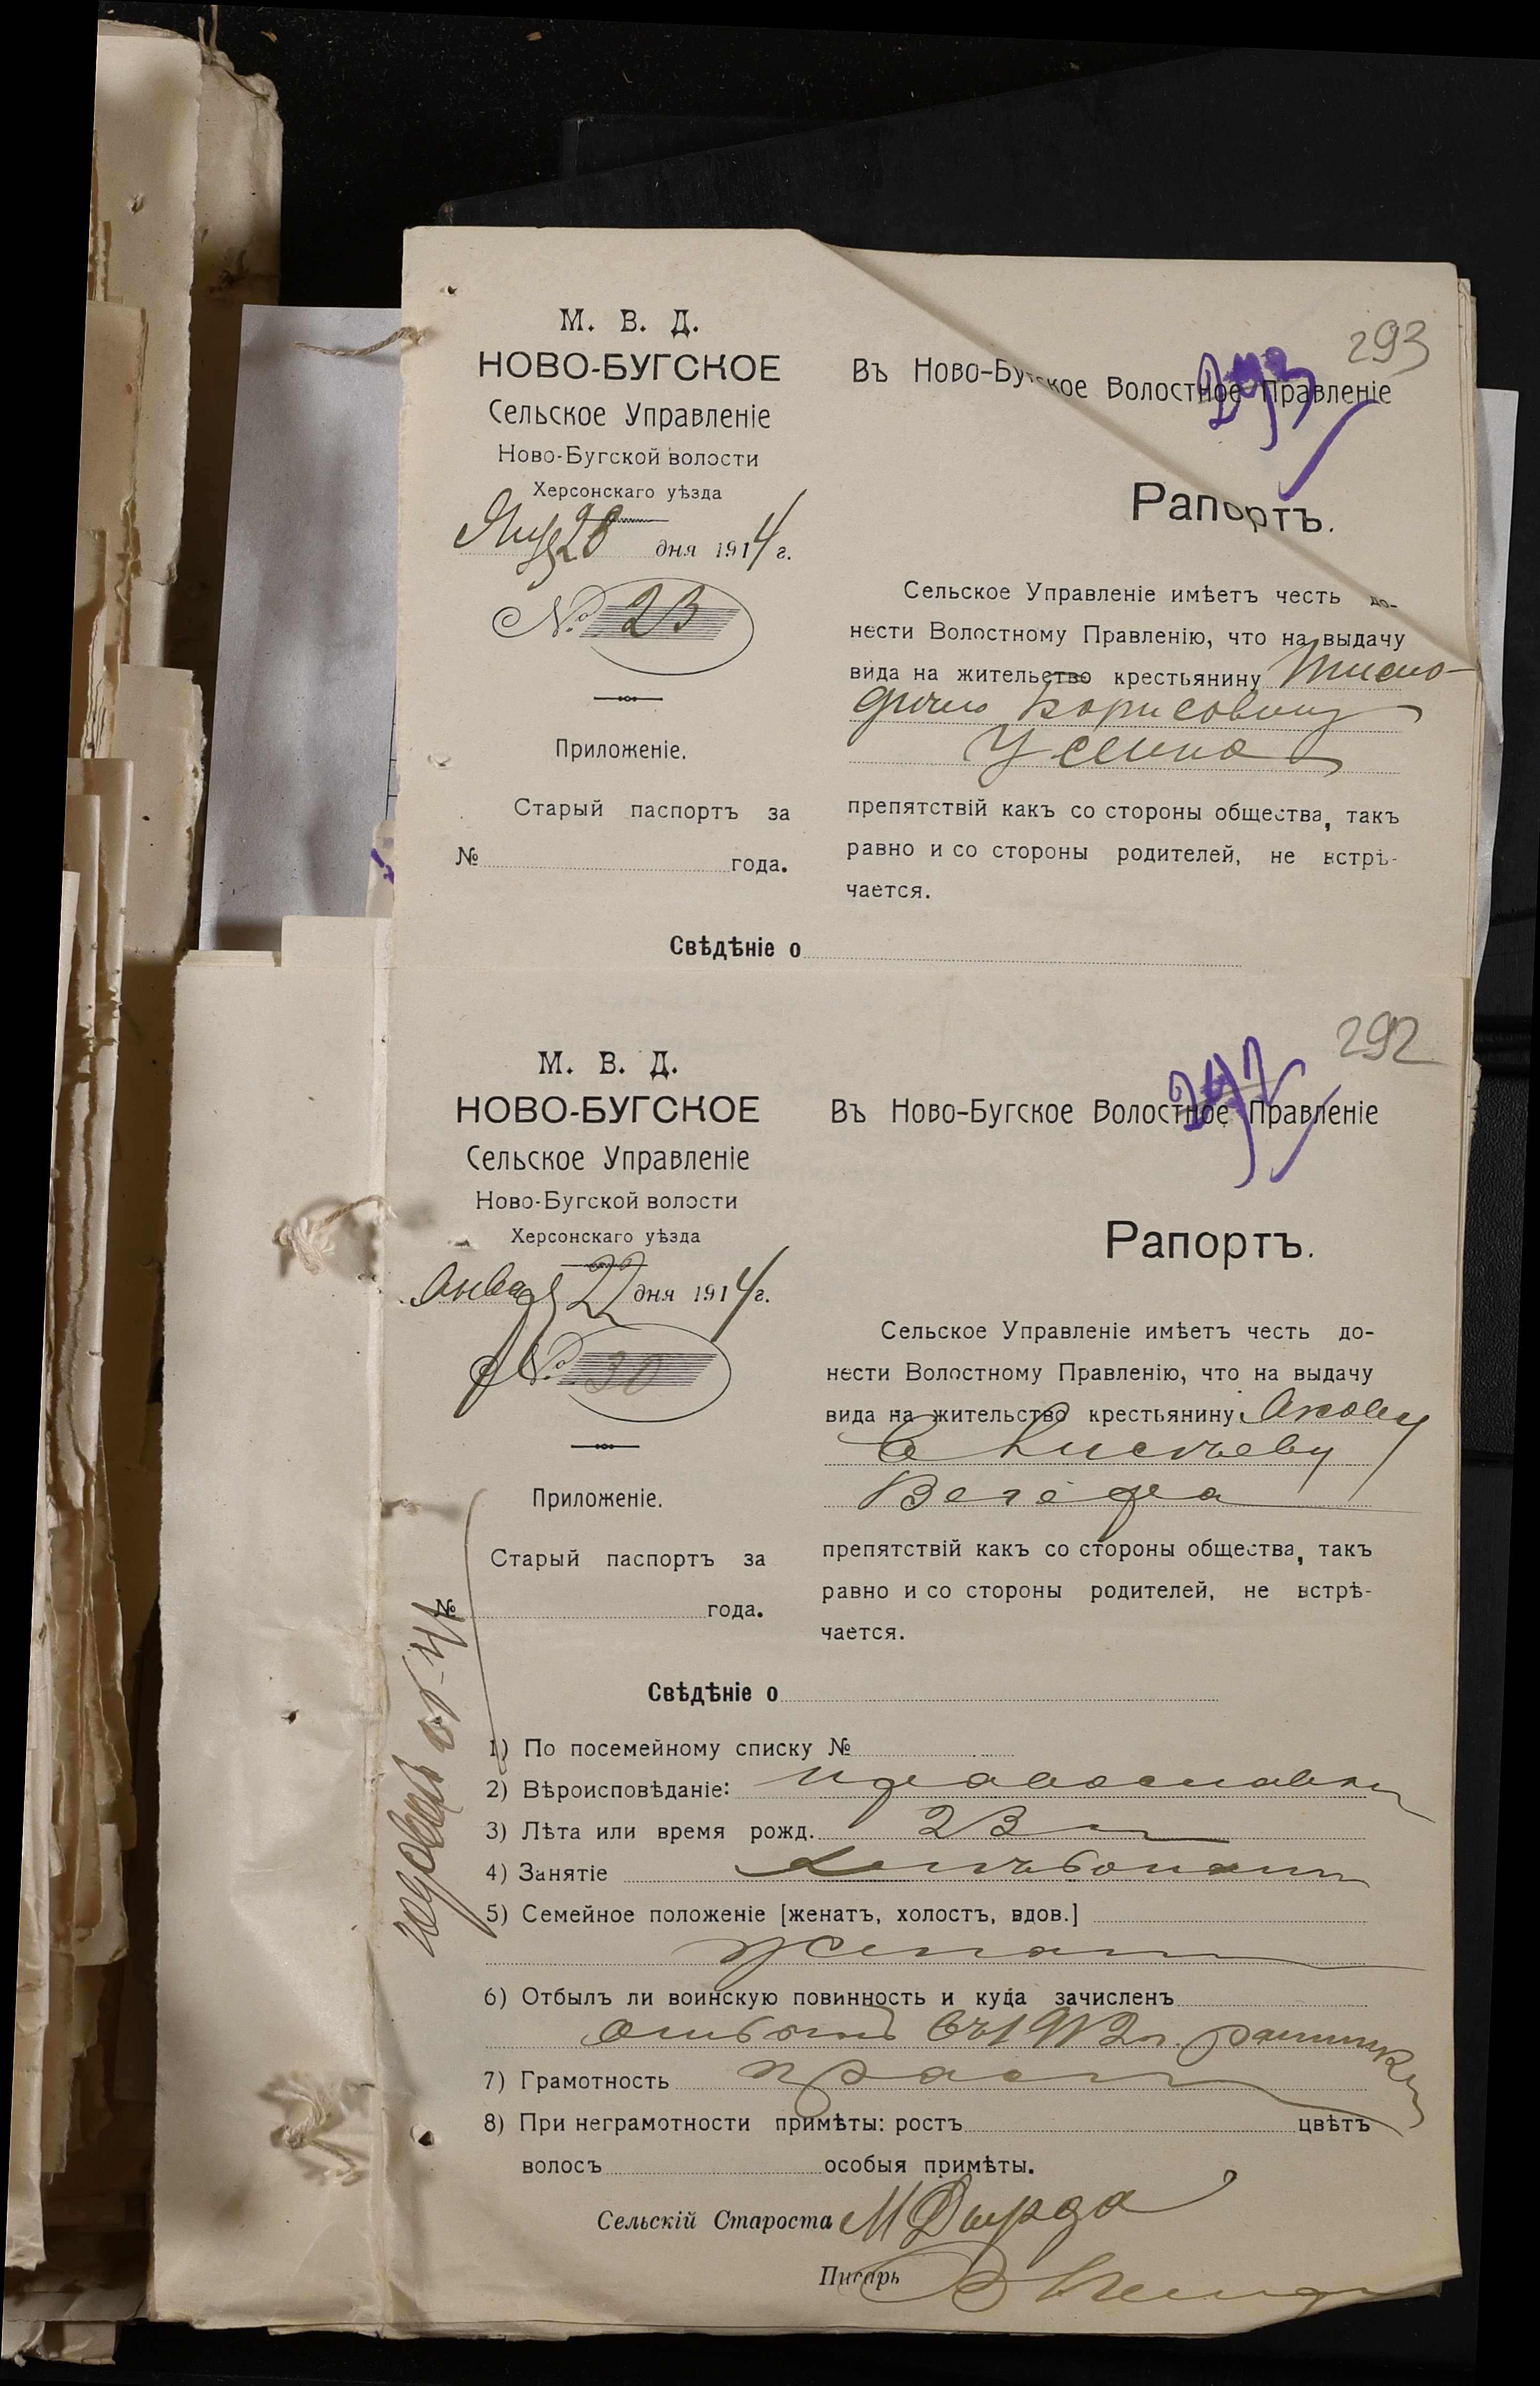 293
М. В. Д.
НОВО-БУГСКОЕ
Сельское Управленіе
Ново-Бугской волости
Херсонскаго уѣзда
28 дня 1914 г.
№ 23
Приложеніе.
Старый паспортъ за
№ года.
293
Въ Ново-Бугское Волостное Правленіе
Рапортъ.
Сельское Управленіе имѣетъ честь до-
нести Волостному Правленію, что на выдачу
вида на жительство крестьянину Тимо-
фѣю Борисовичу
препятствій какъ со стороны общества, такъ
равно и со стороны родителей, не встрѣ-
чается.
Свѣдѣніе о
292
М. В. Д.
НОВО-БУГСКОЕ
Сельское Управленіе
Ново-Бугской волости
Херсонскаго уѣзда
Января 22 дня 1914 г.
№ 30
Приложеніе.
Старый паспортъ за
№ года.
292
Въ Ново-Бугское Волостное Правленіе
Рапортъ.
Сельское Управленіе имѣетъ честь до-
нести Волостному Правленію, что на выдачу
вида на жительство крестьянину Якову
препятствій какъ со стороны общества, такъ
равно и со стороны родителей, не встрѣ-
чается.
Свѣдѣніе о
1) По посемейному списку №
2) Вѣроисповѣданіе: православн
3) Лѣта или время рожд. 23 л
4) Занятіе хлѣбопаш
5) Семейное положеніе [женатъ, холостъ, вдов.]
женат
6) Отбылъ ли воинскую повинность и куда зачисленъ
отбылъ въ 1912 г.
7) Грамотность
8) При неграмотности примѣты: ростъ цвѣтъ
волосъ особыя примѣты.
Сельскій Староста М Дырда
Писарь